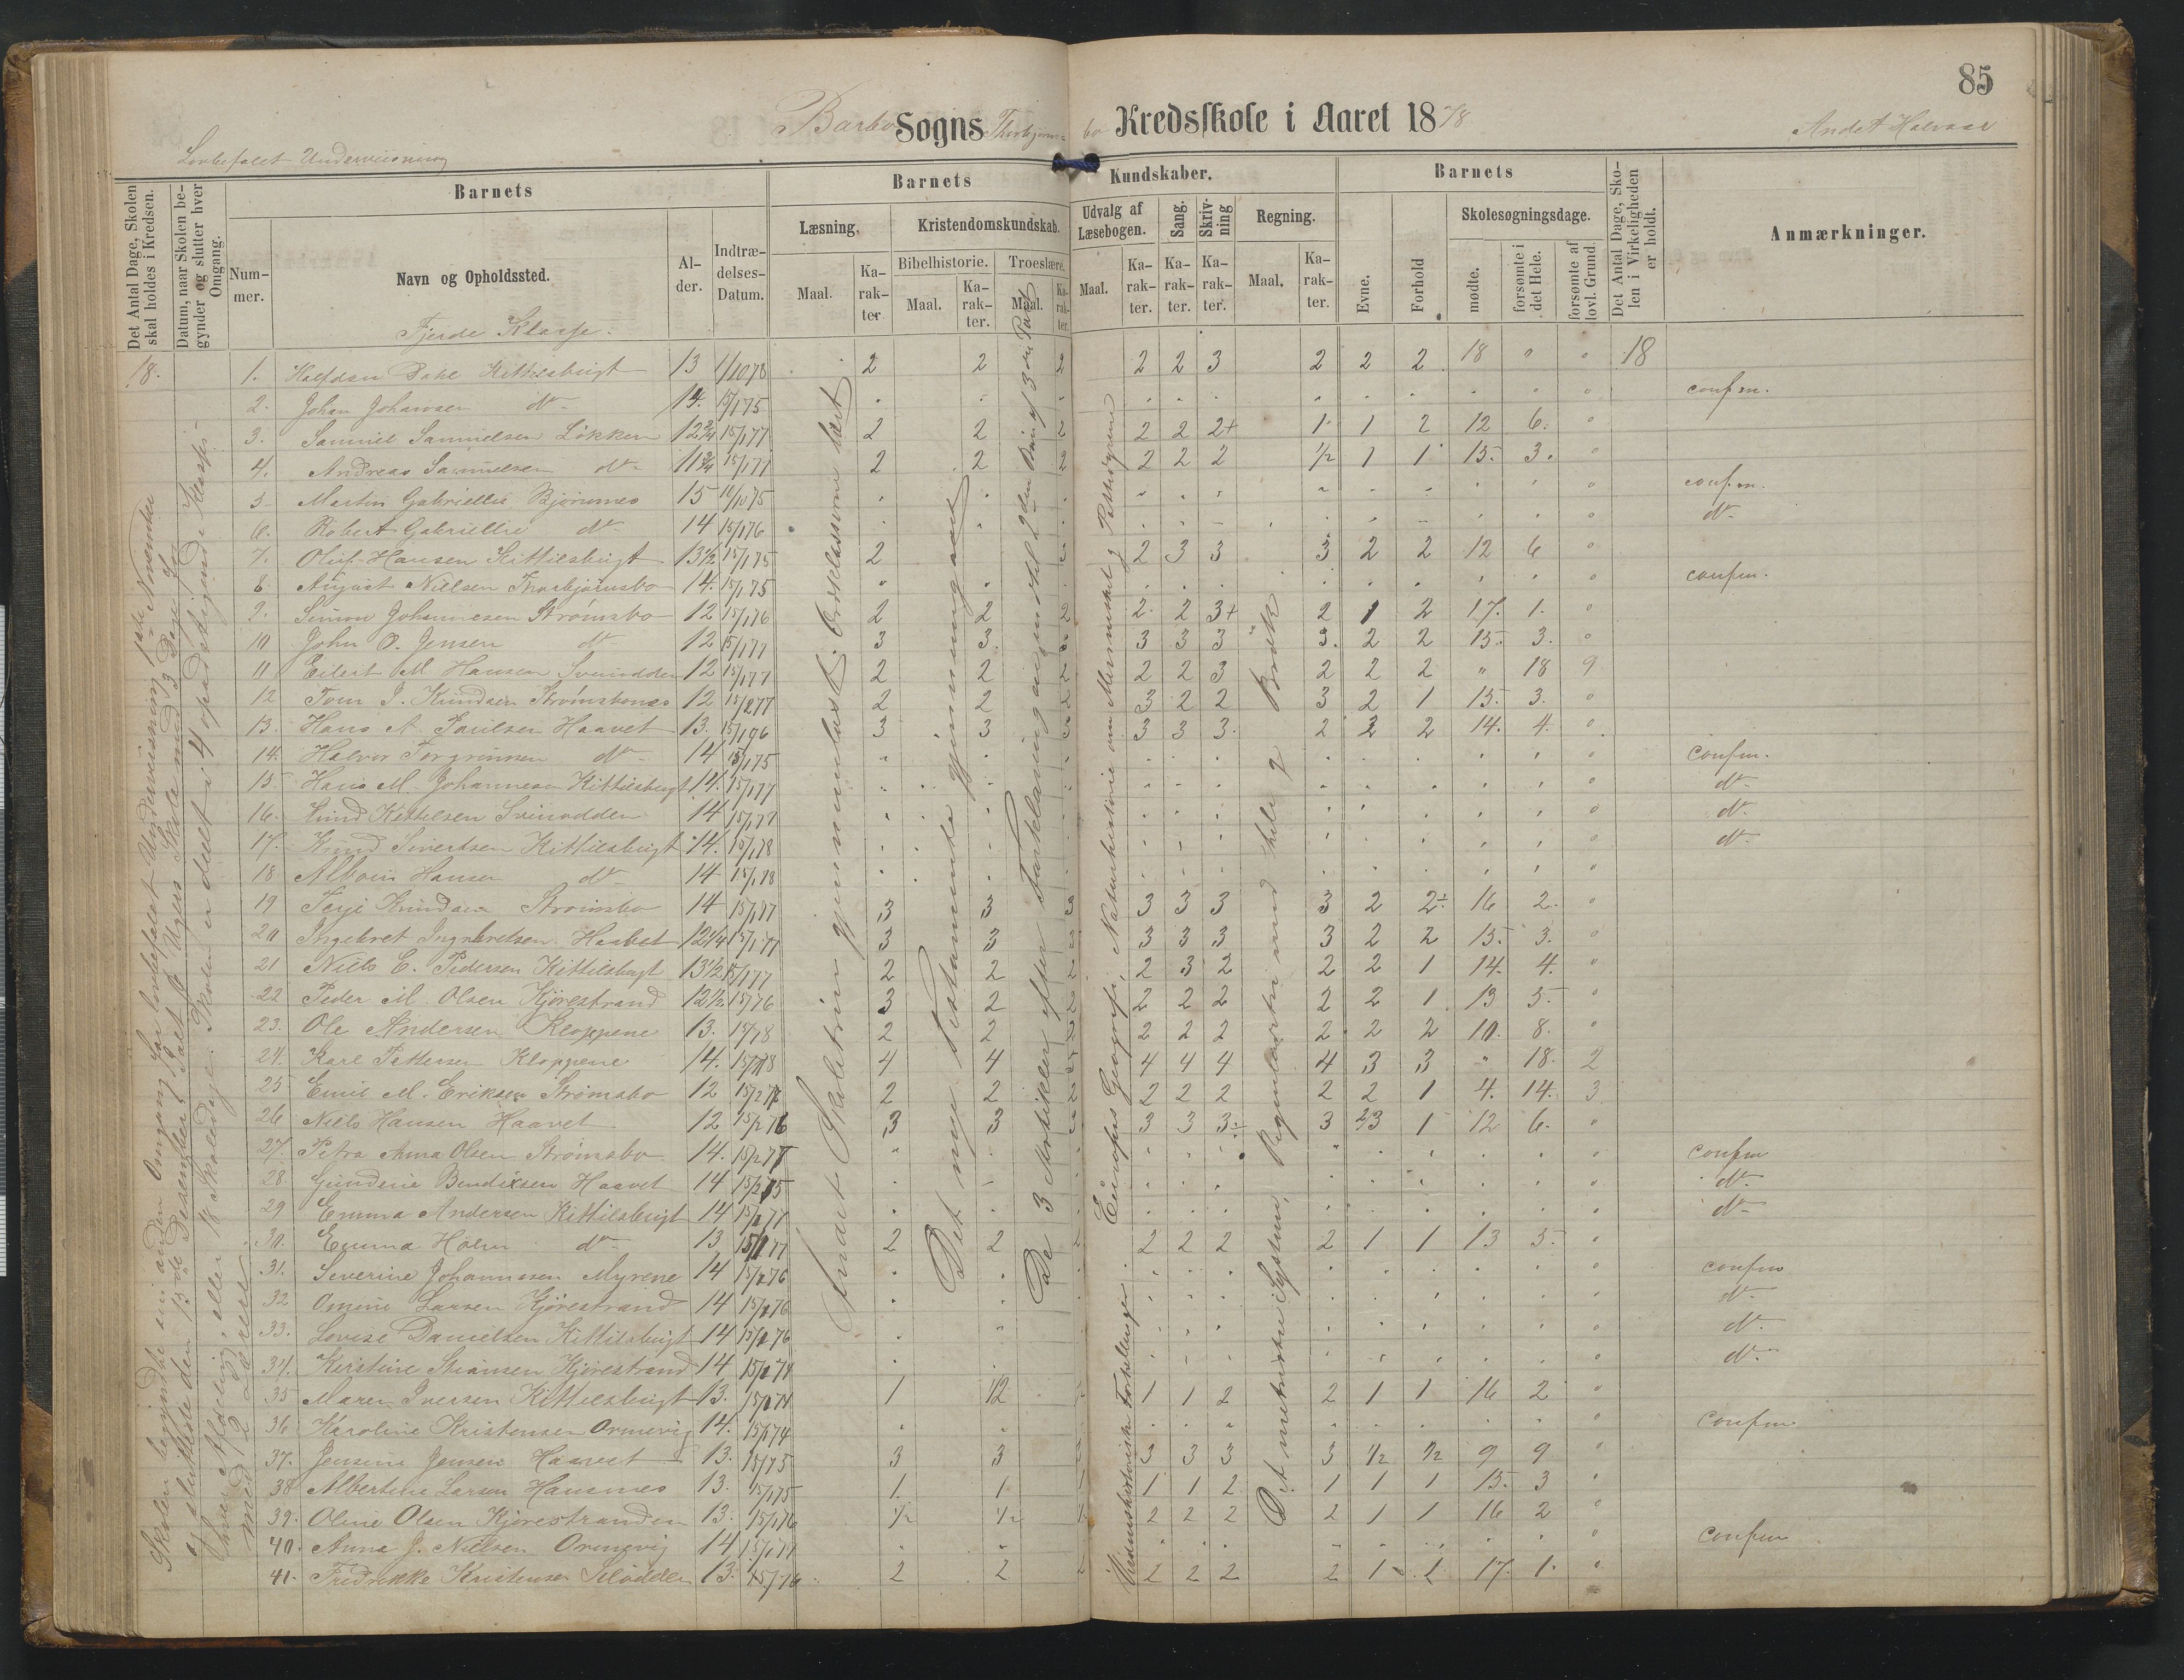 85
Barbo Sogns Thorbjørns= bo Kredsskole i Aaret 1878
Andet Halvaar
Lovbefalet Underviisning
Det Antal Dage, Skolen skal holdes i Kredsen.
Datum, naar Skolen be- gynder og slutter hver Omgang.
Barnets
Barnets Kundskaber.
Barnets
Det Antal Dage, Sko- len i Virkeligheden er holdt.
Anmærkninger.
Num- mer.
Navn og Opholdssted.
Al- der.
Indtræ- delses- Datum.
Læsning.
Kristendomskundskab.
Udvalg af Læsebogen.
Sang.
Skriv- ning
Regning.
Evne.
Forhold
Skolesøgningsdage.
Maal.
Ka- rak- ter
Bibelhistorie.
Troeslære.
Maal.
Ka- rak- ter.
Maal.
Ka- rak- ter.
Maal.
Ka- rak- ter.
Ka- rak- ter.
Ka- rak- ter.
Maal.
Ka- rak- ter.
mødte.
forsømte i det Hele.
forsømte af lovl. Grund.
Fjerde Klasse.
18. 1. Halfdan Dahl Kittelsbugt 13 1/10 78 2 2 2 2 2 3 2 2 2 18 " " 18
2. Johan Johansen dto 14. 15/1 75 confm.
3. Samuel Samuelsen Løkken 12 3/4 15/1 77 2 2 2 2 2 2+ 1 1 2 12 6. "
4. Andreas Samuelsen dto 11 3/4 15/1 77 2 2 2 2 2 2 1/2 1 1 15. 3. "
5. Martin Gabrielsen Bjørnnes 15 confm.
6. Robert dto 14 15/1 76 dto
7. Oluf Hansen Kittelsbugt 13 1/2 15/1 75 2 3 2 3 3 3 2 2 12 6 "
8. August Nielsen Thorbjørnsbo 14. 15/1 75 confm.
9. Simon Johannesen Strømsbo 12 15/1 76 2 2 2 2 2 3+ 2 1 2 17. 1. "
10 John O. Jensen dto 12 15/1 77 3 3. 3 3 3 3 3. 2 2 15. 3. "
11 Eilert M Hansen Svinodden 12 15/1 77 2 2 2 2 2 3 2 2 2 " 18 9
12 Tom J. Knudsen Strømsbones 12 15/2 77 2 2 2 3 2 2 3 2 1 15. 3. "
13. Hans A. Paulsen Haavet 13. 3 3 3 3 3 3. 2 2 2 14. 4. "
14. Halvor Torgrimsen dto 14 15/1 75 confm.
15. Hans M. Johannesen Kittelsbugt 14. 15/1 77 dto
16. Kittelsen Svinodden 14 15/1 77 dto
17. Knud Sivertsen Kittelsbugt 14. 15/1 78 dto
18 Hansen dto 14 15/1 78
19 Terje Knudsen Strømsbo 14 15/1 77 3 3 3 3 3 3 3 2 2÷ 16 2. "
20 Ingebret Ingebretsen Haavet 12 1/4 15/1 77 3 3 3 3 3 3 3 2 2 15. 3. "
21 Niels C. Pedersen Kittelsbugt 13 1/2 15/1 77 2 2 2 2 3 2 2 2 1 14. 4. "
22 Peder M. Olsen Kjørestrand 12 1/2 15/1 76 3 2 2 2 2 2 2 2 1 13 5. "
23. Ole Andersen Kloppene 13. 15/1 78 2 2 2 2 2 2 2 2 2 10. 8. "
24. Karl Pettersen Kloppene 14. 15/1 78 4 4 4 4 4 4 4 3 3 " 18. 2
25 Emil M. Eriksen Strømsbo 12 2 2 2 2 2 2 2 2 1 4. 14. 3
26 Niels Hansen Haavet 12 15/2 76 3 3 3 3 3 3÷ 3 2/3 1 12 6. "
27. Petra Anna Olsen Strømsbo 14. confm
28. Gundine Bendixsen Haavet 14 dto
29 Emma Andersen Kittelsbugt 14 dto
30. Emma Holm dto 13 2 2 2 2 2 2 2 1 1 13 5. "
31. Severine Johannesen Myrene 14 15/1 76 confm
32 Omine Larsen Kjørestrand 14 15/1 76 dto
33. Lovise Danielsen Kittelsbugt 14 15/1 76 dto
34. Kirstine Kjørestrand 14 15/1 74 dto
35 Maren Iversen Kittelsbugt 13. 15/1 74 1 1/2 1 1 2 2 1 1 16 2 "
36 Karoline Kristensen Ormevig 14. 15/1 74 confm.
37. Jensine Jensen Haavet 13. 15/1 75 3 3 3 3 3 3 3 1/2 1/2 9 9 "
38 Albertine Larsen Hansnes 13. 15/1 75 1. 1 1 1 1 2 1 1 1 15. 3 "
39. Oline Olsen Kjørestranden 13. 15/1 76 1/2 1/2 2 2 2 2 1 1 16 2 "
40. Anna J. Nielsen Ormevig 14 15/1 74 confm
41. Fredrikke Kristensen 13. 2 2 2 2 2 2 2 1 1 17. 1. "
Skolen begyndte sin anden Omgang for lovbefalet Underviisning 1ste November
og sluttede den 13de Desember, i alt 6 Ugers Skole med 3 Dage for
hver Afdeling, eller 18 Skoledage. Skolen er deelt i 4 opadstigende Klasser
med 2 Lærere
Andet Skoletrin gjennemlæst. Ordklasserne lært
Det nye Testamente gjennemgaaet
De 3 Artikler efter Forklaring
Europas Geografi, Naturhistorie om Mennesket og Pattedyrene
Verdenshistoriske Fortællinger.
Det metriske System, Regnearter med hele og Brøk